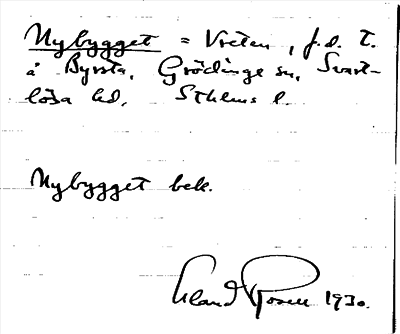 Nybygget = Vreten, f.d. t.
å Byrsta, Grödinge sn, Svart-
lösa hd, Sthlms l.
Nybygget bek.
Roland Rosell 1930.